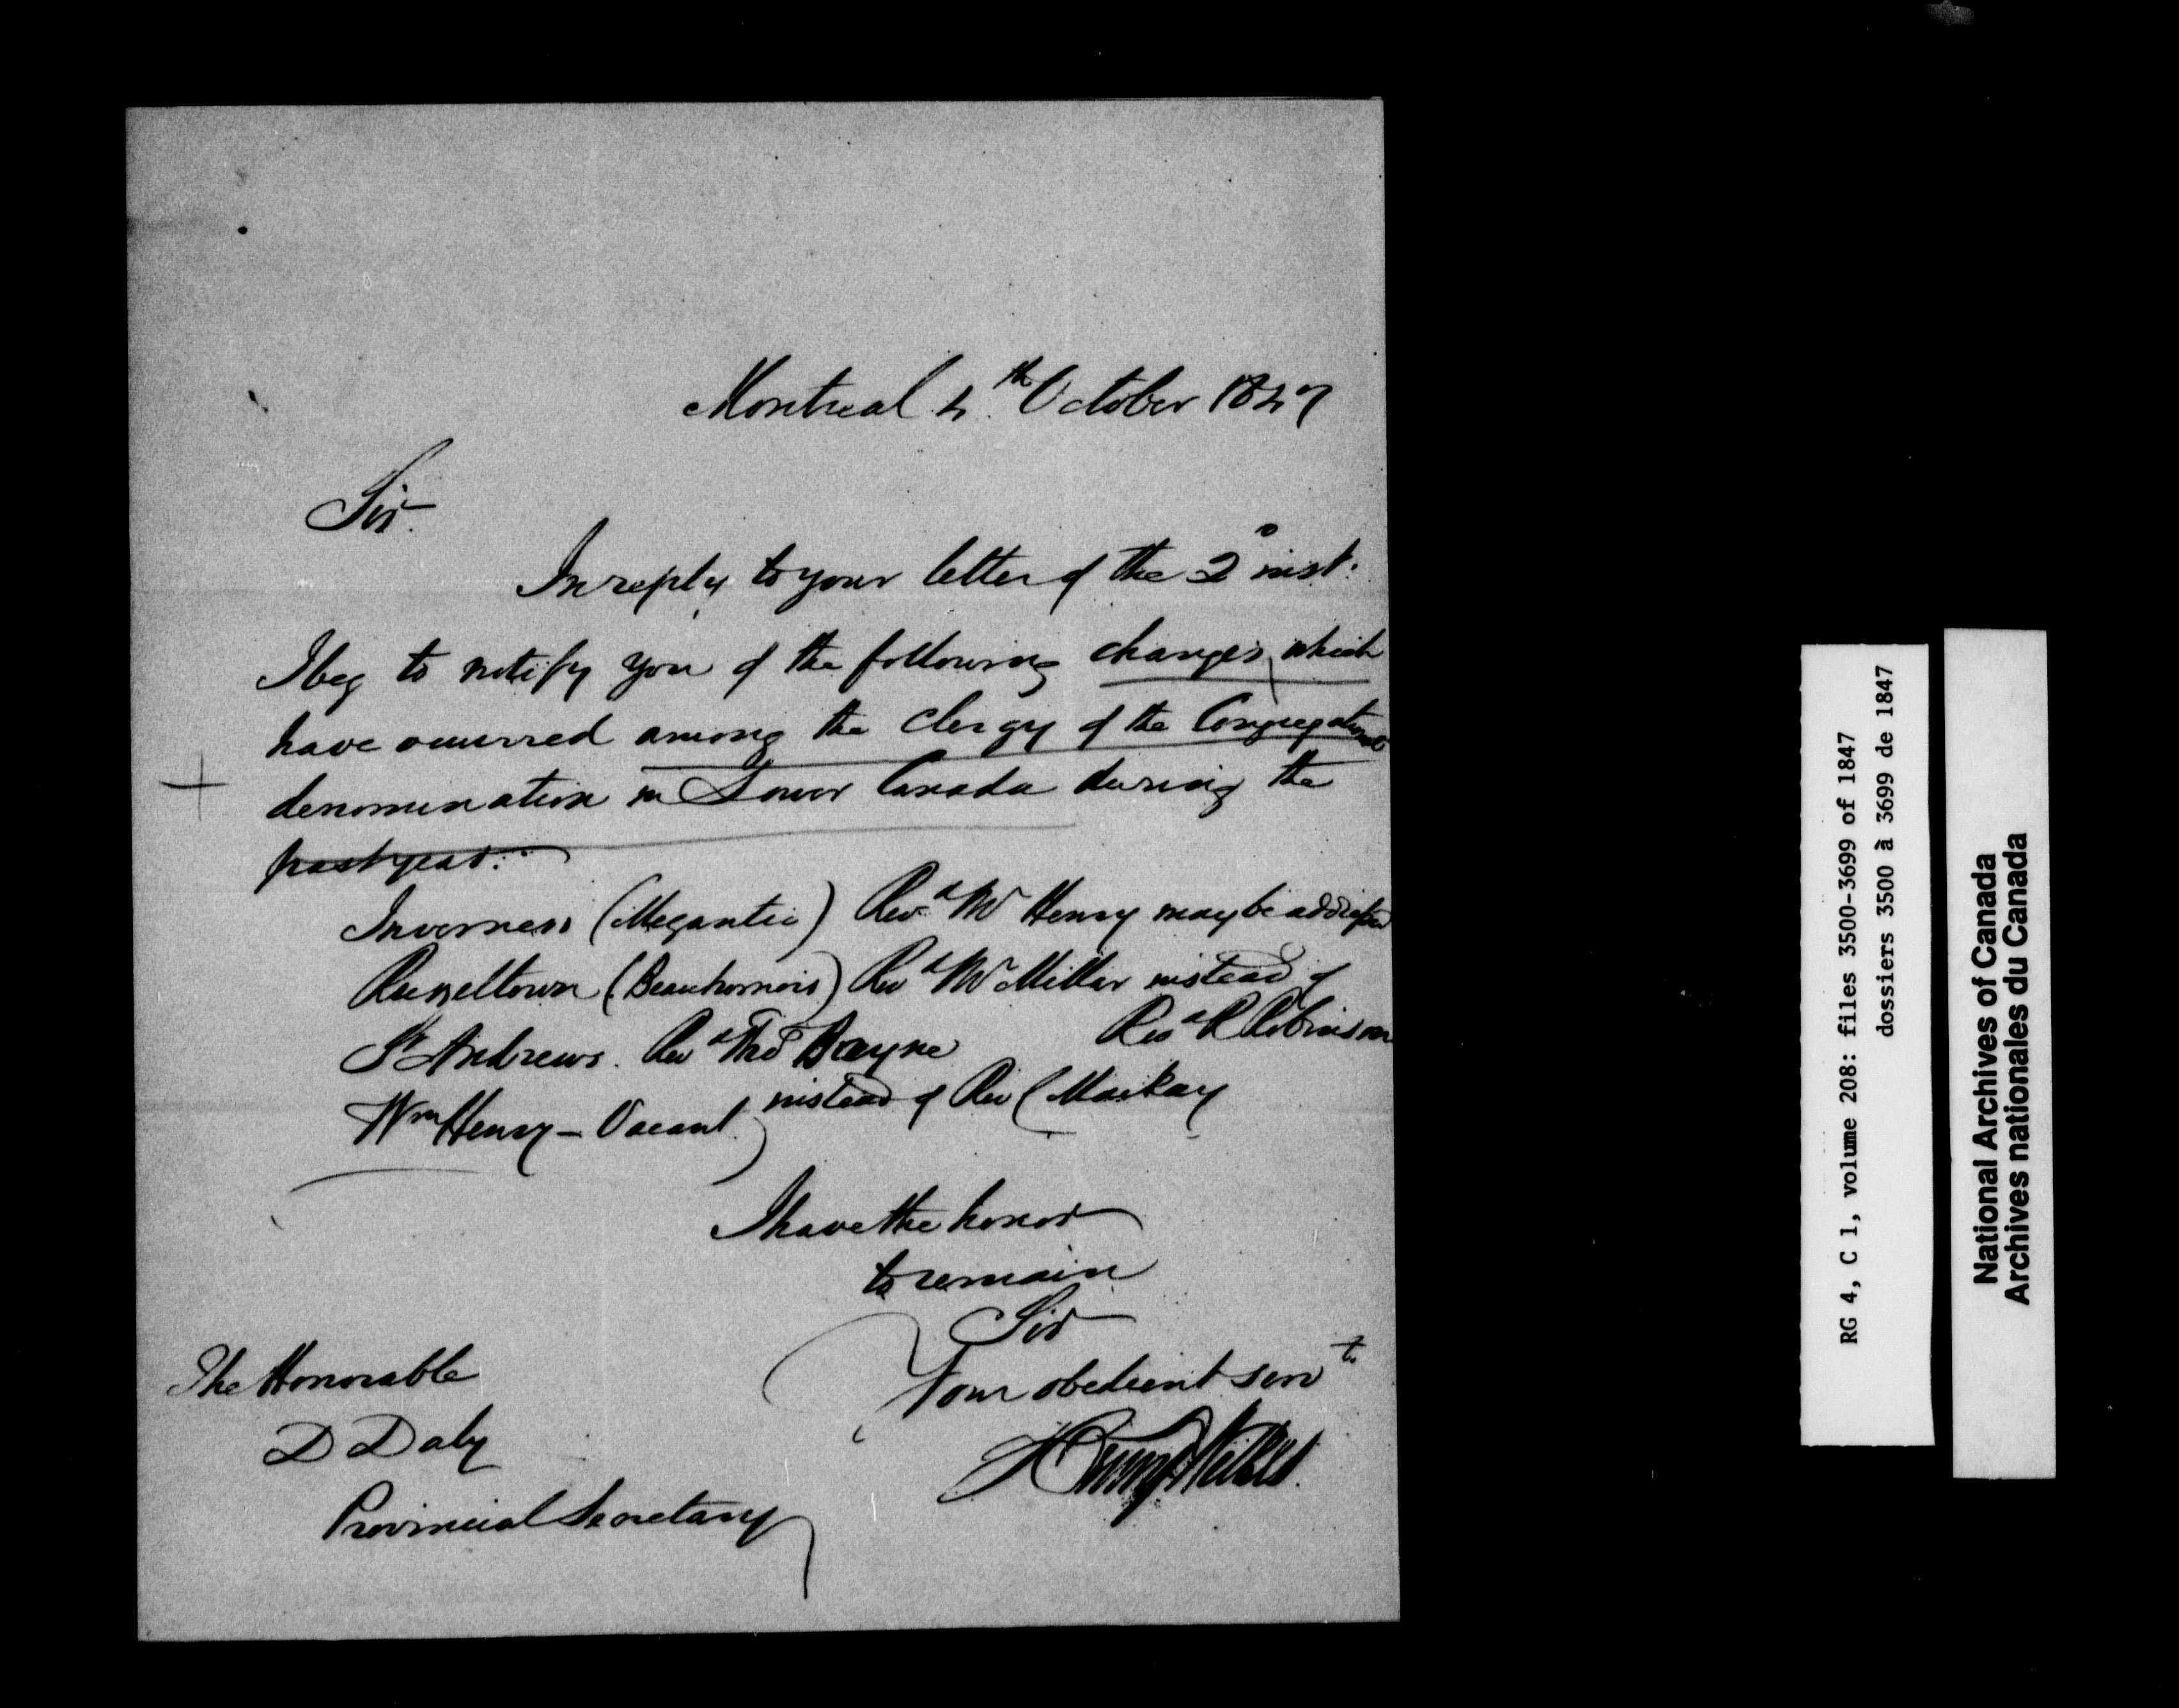 Montreal 4th October 1847
Sir.
In reply to your letter of the 2d inst.
I beg to notify you of the following changes, which
have occurred among the clergy of the Congregational
denomination in Lower Canada during the
past year:
Inverness (Megantic) Revd Mr Henry may be addressed
Russeltown (Beauharnois) Revd Mr Millar instead of
Revd R Robinson
St Andrews. Revd Tho Bayne
instead of Rev C Mackay
Wm Henry - Vacant.
I have the honor
to remain
Sir
Your obedient servt
Henry Wilkes.
The Honorable
D Daly
Provincial Secretary
RG 4, C 1, volume 208: files 3500-3699 of 1847
dossiers 3500 à 3699 de 1847
National Archives of Canada
Archives nationales du Canada